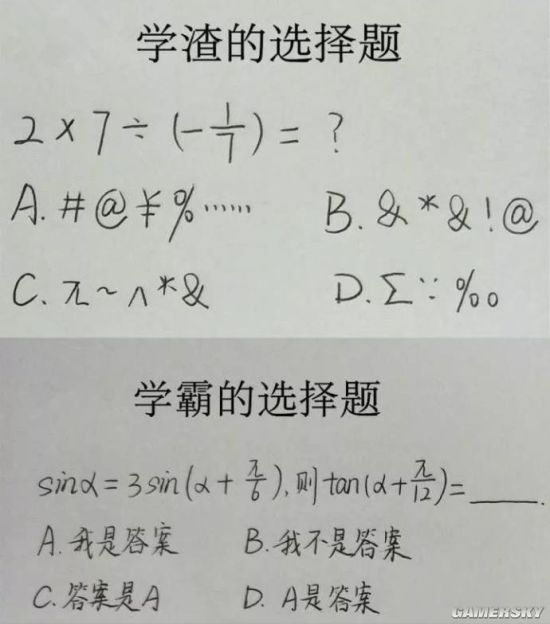 学渣的选择题
2×7÷(-1/7)=?
A.#@¥%…… B.&*&!@
C.π~∧*& D.∑∵‰
学霸的选择题
sinα=3sin(α+π/6),则tan(α+π/12)=____.
A.我是答案 B.我不是答案
C.答案是A D.A是答案
GAMERSKY